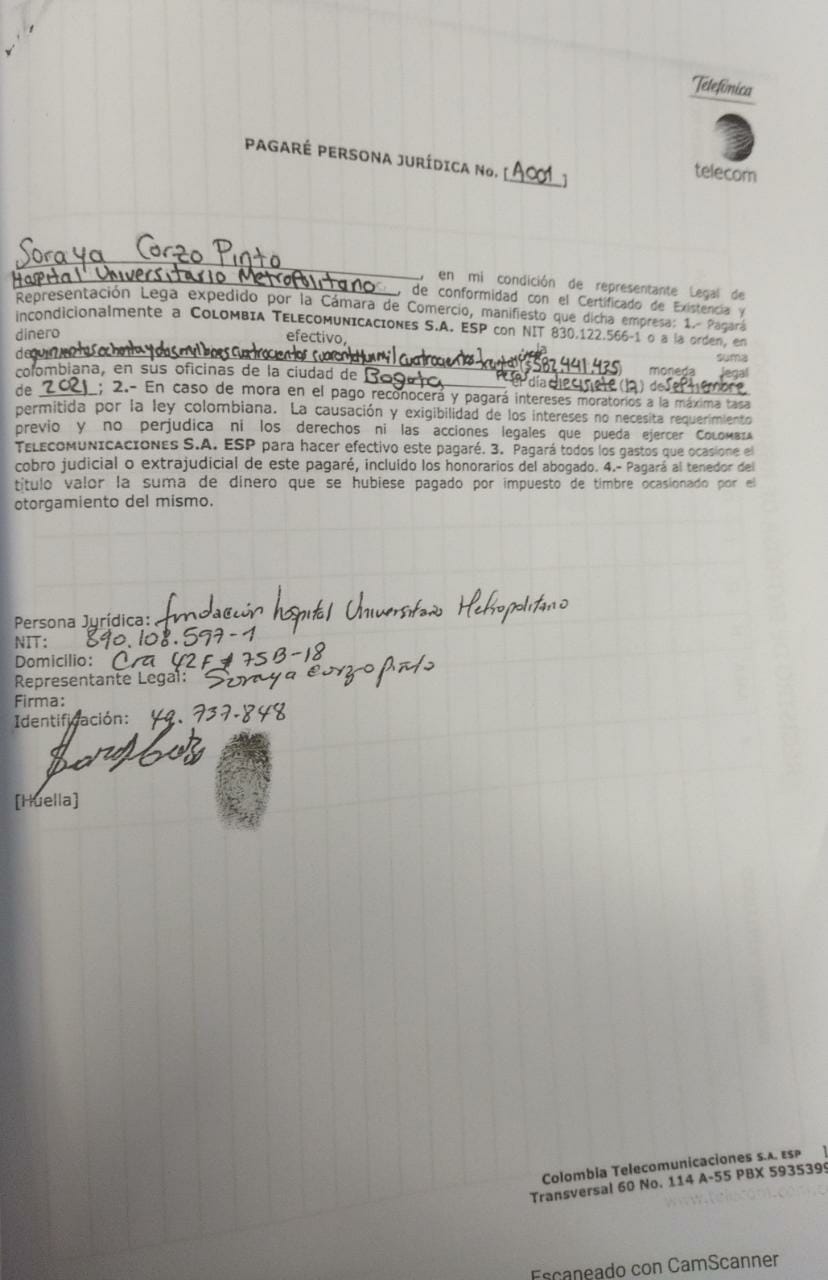 Telefónica
telecom
PAGARÉ PERSONA JURÍDICA No. [A001]
Soraya Corzo Pinto
Hospital Universitario Metropolitano, en mi condición de representante Legal de
, de conformidad con el Certificado de Existencia y
Representación Lega expedido por la Cámara de Comercio, manifiesto que dicha empresa: 1.- Pagará
incondicionalmente a COLOMBIA TELECOMUNICACIONES S.A. ESP con NIT 830.122.566-1 o a la orden, en
dinero efectivo, la suma
de quinientos ochenta y dos millones cuatrocientos cuarenta y un mil cuatrocientos treinta Pesos ($582.441.435) moneda legal
colombiana, en sus oficinas de la ciudad de Bogota, el día diecisiete (17) de Septiembre
de 2021; 2.- En caso de mora en el pago reconocerá y pagará intereses moratorios a la máxima tasa
permitida por la ley colombiana. La causación y exigibilidad de los intereses no necesita requerimiento
previo y no perjudica ni los derechos ni las acciones legales que pueda ejercer COLOMBIA
TELECOMUNICACIONES S.A. ESP para hacer efectivo este pagaré. 3. Pagará todos los gastos que ocasione el
cobro judicial o extrajudicial de este pagaré, incluido los honorarios del abogado. 4.- Pagará al tenedor del
título valor la suma de dinero que se hubiese pagado por impuesto de timbre ocasionado por el
otorgamiento del mismo.
Persona Jurídica: fundación hospital Universitario Metropolitano
NIT: 890.108.597-1
Domicilio: Cra 42F # 75B-18
Representante Legal: Soraya Corzo Pinto
Firma:
Identificación: 49.737.848
[Huella]
Colombia Telecomunicaciones S.A. ESP
Transversal 60 No. 114 A-55 PBX 5935399
Escaneado con CamScanner